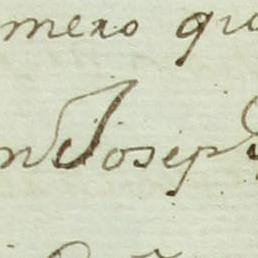 mero qu
n Joseph